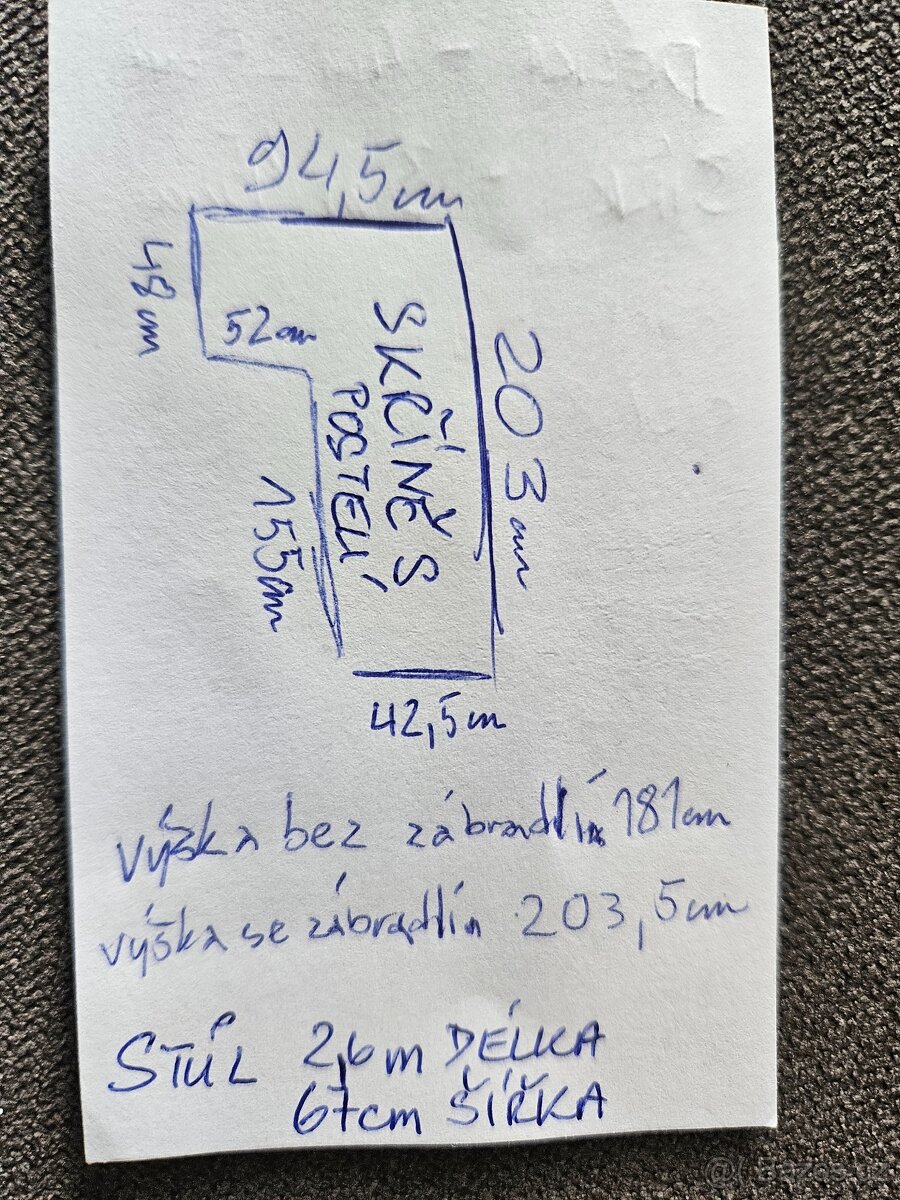 94,5cm
48cm
52cm
SKŘÍNĚ S
POSTELÍ
203cm
155cm
42,5cm
výška bez zábradlím 181cm
výška se zábradlím 203,5cm
STŮL 2,6m DÉLKA
67cm ŠÍŘKA
@ Bazos.cz